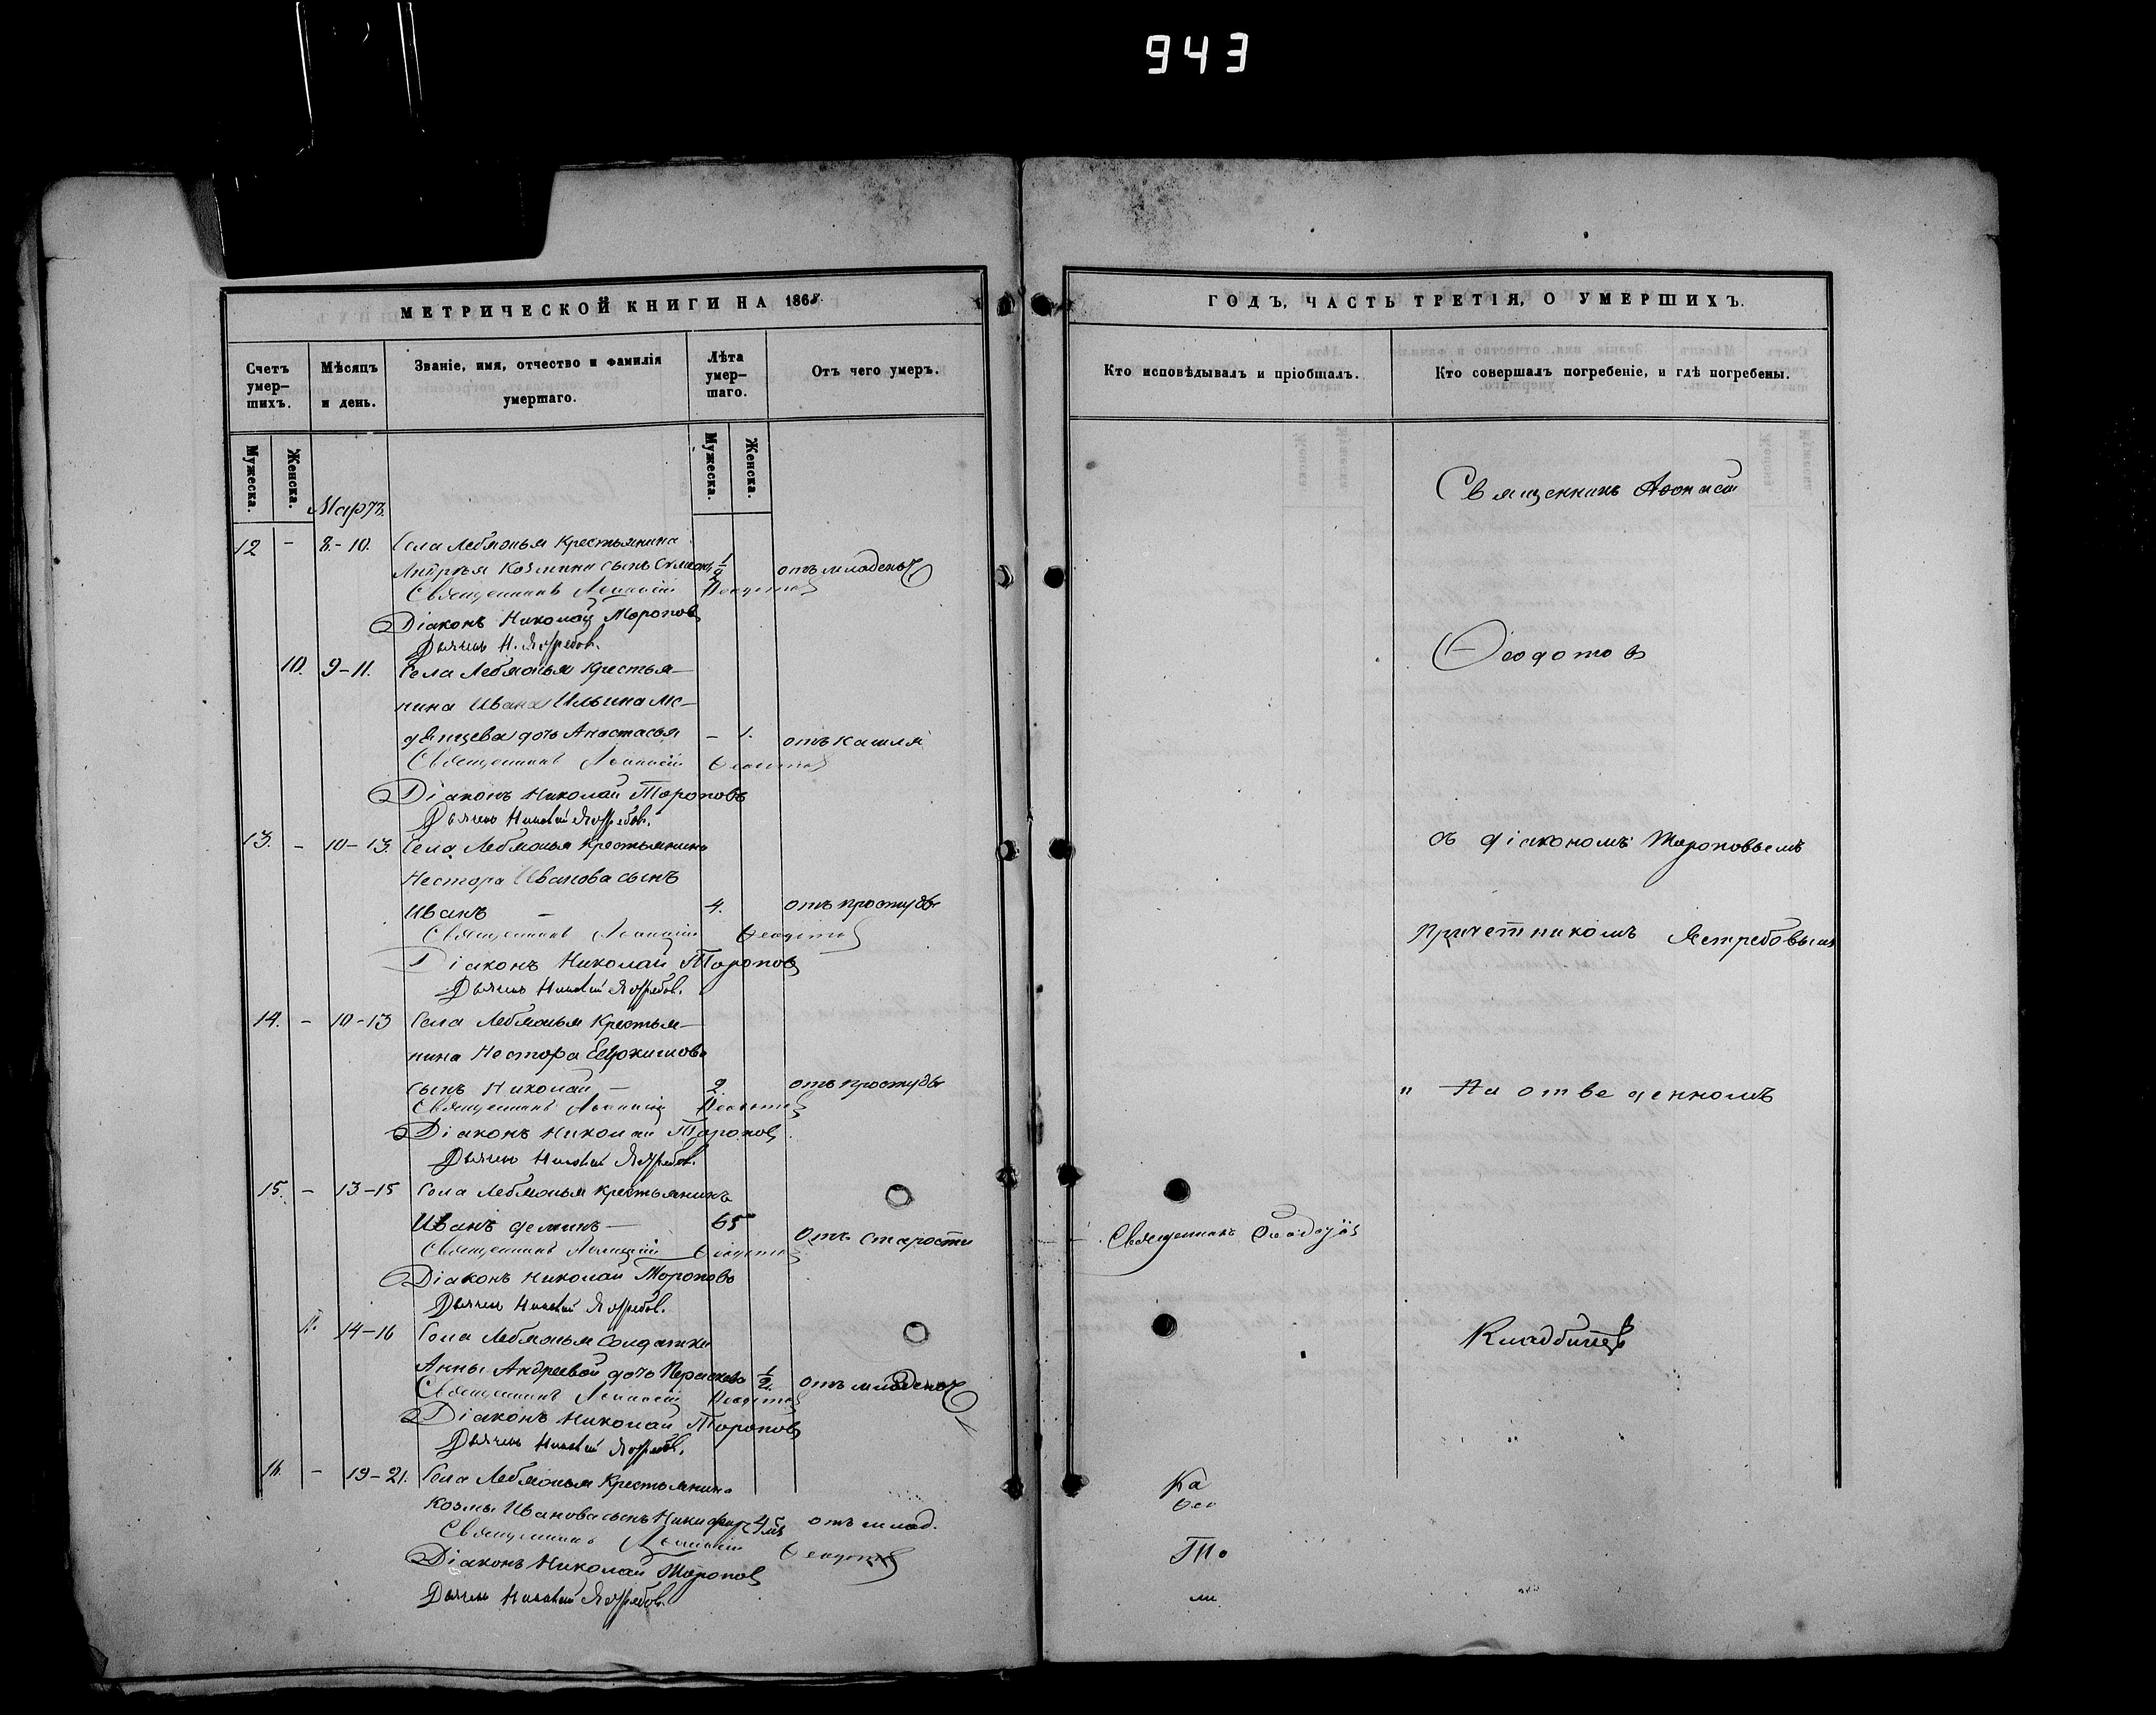 943
МЕТРИЧЕСКОЙ КНИГИ НА 1868
ГОДЪ, ЧАСТЬ ТРЕТІЯ, О УМЕРШИХЪ.
Счетъ умершихъ.
Мѣсяцъ и день.
Званіе, имя, отчество и фамилія умершаго.
Лѣта умершаго.
Отъ чего умеръ.
Кто исповѣдывалъ и пріобщалъ.
Кто совершалъ погребеніе, и гдѣ погребены.
Мужеска.
Женска.
Мужеска.
Женска.
Мартъ.
12 - 8.-10. Села Лебяжья Крестьянина
Андрея Козмина сынъ Симеонъ 1/2 отъ младенч
Священникъ Афанасій Феодотов
Діаконъ Николай Торопов
Дьячекъ Н. Ястребов.
10. 9-11. Села Лебяжья крестья-
нина Ивана Ильина Ме-
дянцева дочь Анастасья - 1. отъ кашля
Священникъ Афанасій Феодотов
Діаконъ Николай Тороповъ
Дьячекъ Николай Ястребов.
13. - 10-13. Села Лебяжья Крестьянина
Нестора Иванова сынъ
Иванъ - 4. отъ простуды
Священникъ Афанасій Феодотов
Діаконъ Николай Торопов
Дьячекъ Николай Ястребов.
14. - 10-13 Села Лебяжья Крестья-
нина Нестора Евдокимова
сынъ Николай - 2. отъ простуды
Священникъ Афанасій Феодотов
Діаконъ Николай Торопов
Дьячекъ Николай Ястребов.
15. - 13-15 Села Лебяжья крестьянинъ
Иванъ Деминъ - 65 отъ старости
Священникъ Афанасій Феодотов
Діаконъ Николай Торопово
Дьячекъ Николай Ястребов.
11. 14-16 Села Лебяжья Солдатки
Анны Андреевой дочь Парасковья 1/2. отъ младенч
Священникъ Афанасій Феодотов
Діаконъ Николай Торопов
Дьячекъ Николай Ястребов.
16. - 19-21. Села Лебяжья Крестьянина
Козмы Иванова сынъ Никифоръ 4 отъ млад.
Священникъ Афанасій Феодотов
Діаконъ Николай Торопов
Дьячекъ Николай Ястребов.
Священникъ
Ка
Фео
То
ли
Священникъ Афонасій
Феодотов
съ діакономъ Тороповымъ
причетникомъ Ястребовымъ
" На отведенномъ
Кладбищѣ